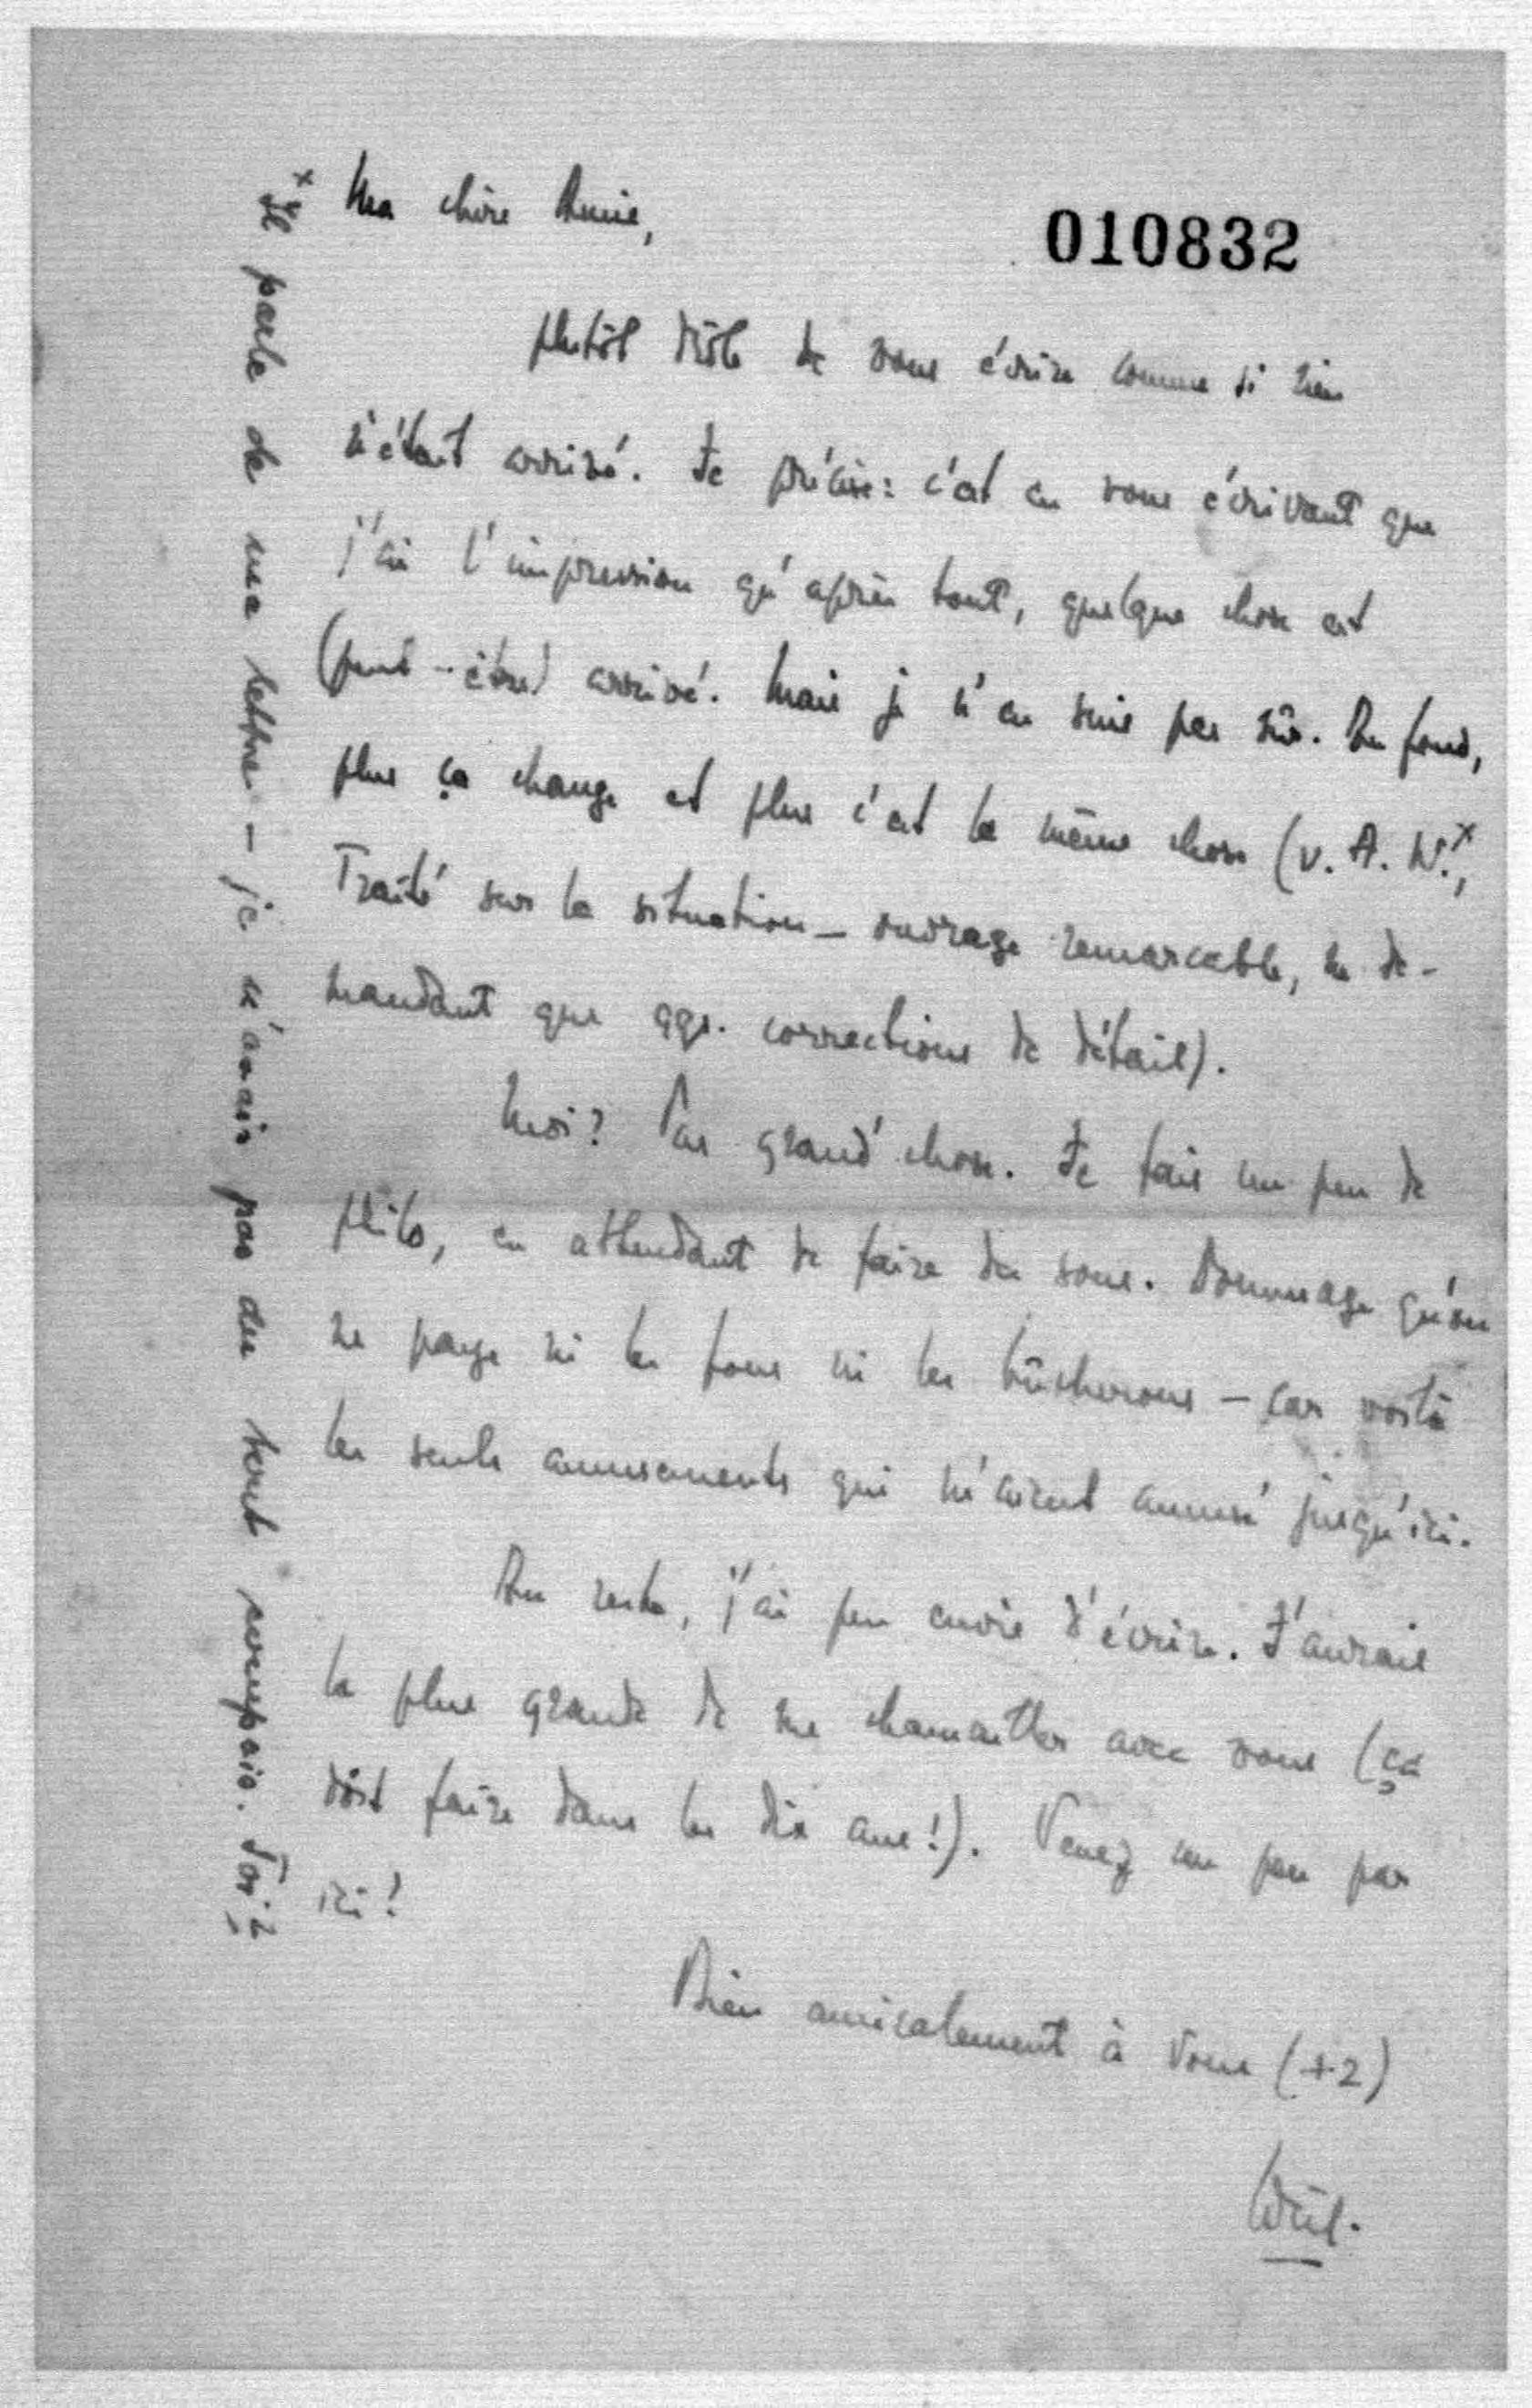 Ma chère Amie,
010832
plutôt drôle de vous écrire comme si rien
n'était arrivé. Je précise: c'est en vous écrivant que
j'ai l'impression qu'après tout, quelque chose est
(peut-être) arrivé. Mais je n'en suis pas sûr. Au fond,
plus ça change et plus c'est la même chose (v. A. W.ˣ,
Traité sur la situation – ouvrage remarcable, ne de-
mandant que qqs. corrections de détail).
Moi? Pas grand'chose. Je fais un peu de
philo, en attendant de faire des sous. Dommage qu'on
ne paye ni les fous ni les bûcherons – car voilà
les seuls amusements qui m'aient amusé jusqu'ici.
Du reste, j'ai peu envie d'écrire. J'aurais
la plus grande de me chamailler avec vous (ça
doit faire dans les dix ans!). Venez un peu par
ici!
Bien amicalement à vous (+2)
Weil.
ˣ Il parle de ma lettre – je n'avais pas du tout compris.